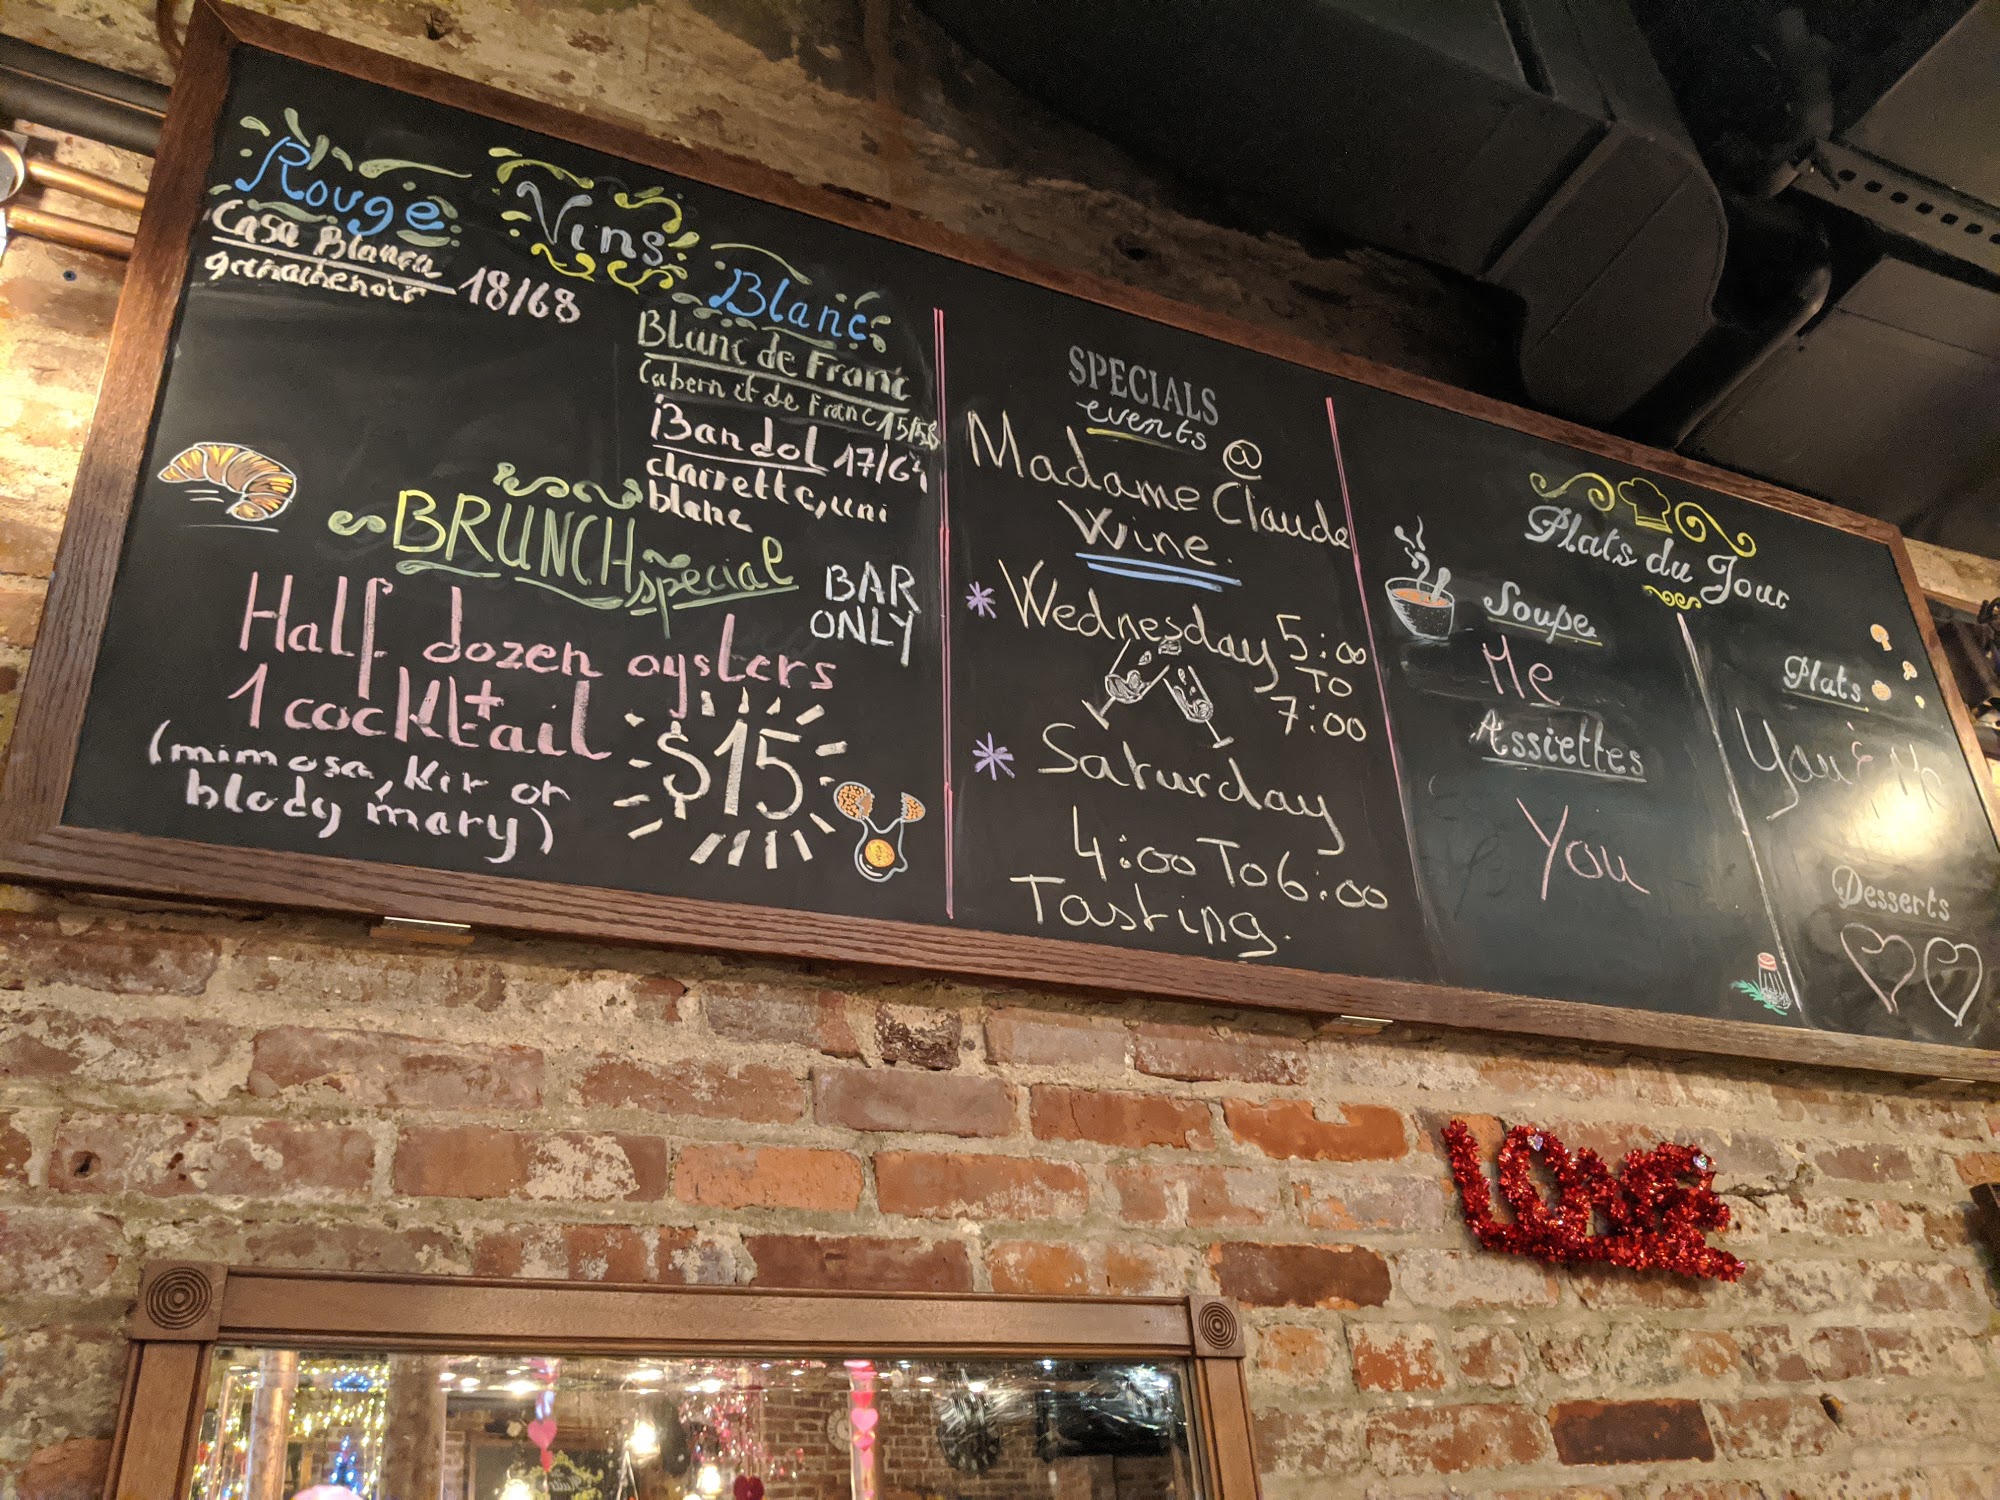 Rouge
Casa Blanca
grenache noir 18/68
Vins
Blanc
Blanc de Franc
Cabernet de Franc 15/58
Bandol 17/64
clairette, uni
blanc
BRUNCH
special
BAR
ONLY
Half dozen oysters
+
1 cocktail
(mimosa, Kir or
blody mary)
$15
SPECIALS
events @
Madame Claude
Wine.
* Wednesday 5:00
To
7:00
* Saturday
4:00 To 6:00
Tasting.
Plats du Jour
Soupe
Me
Assiettes
You
Plats
Desserts
LOVE